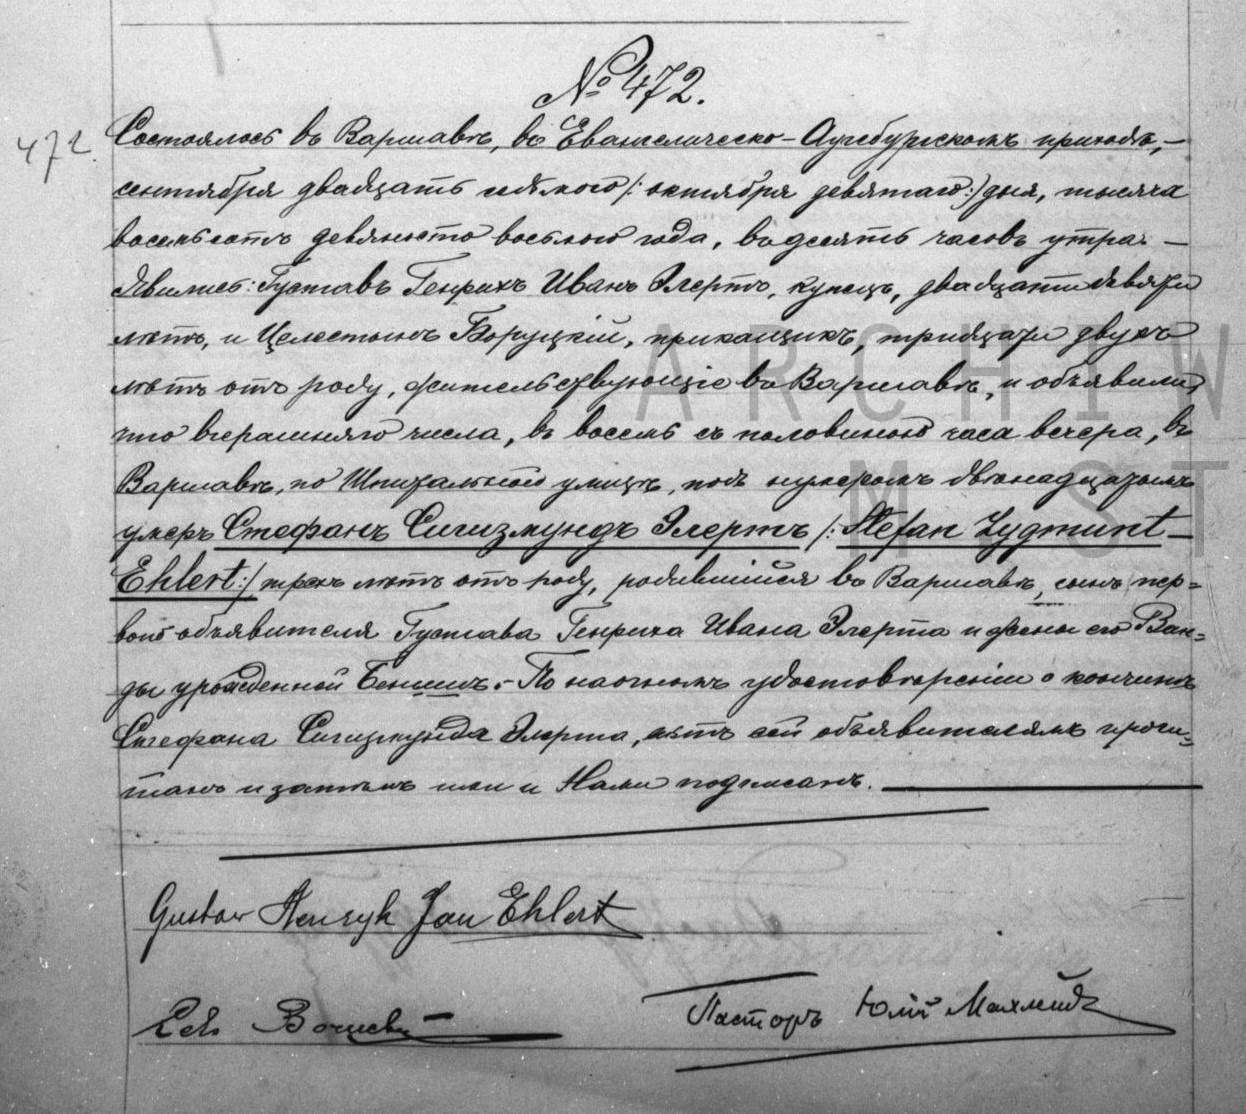 № 472.
472.
Состоялось въ Варшавѣ, въ Евангелическо-Аугсбургскомъ приходѣ,—
сентября двадцать седьмого /: октября девятаго :/ дня, тысяча
восемьсотъ девяносто восьмого года, въ десять часовъ утра. —
Явились: Густавъ Генрихъ Иванъ Элертъ, купецъ, двадцати девяти
лѣтъ, и Целестынъ Боруцкій, прикащикъ, тридцати двухъ
лѣтъ отъ роду, жительствующіе въ Варшавѣ, и объявили,
что вчерашняго числа, въ восемь съ половиною часа вечера, въ
Варшавѣ, по Шпитальной улицѣ, подъ нумеромъ двѣнадцатымъ
умеръ Стефанъ Сигизмундъ Элертъ /: Stefan Zygmunt —
Ehlert :/ трехъ лѣтъ отъ роду, родившійся въ Варшавѣ, сынъ пер=
вого объявителя Густава Генриха Ивана Элерта и жены его Ван=
ды урожденной Бенишъ. – По наочномъ удостовѣреніи о кончинѣ
Стефана Сигизмунда Элерта, актъ сей объявителямъ прочи=
танъ и затѣмъ ими и Нами подписанъ.
Gustaw Henryk Jan Ehlert
Пасторъ Юлій Махлейдъ
ARCHIW
M ST